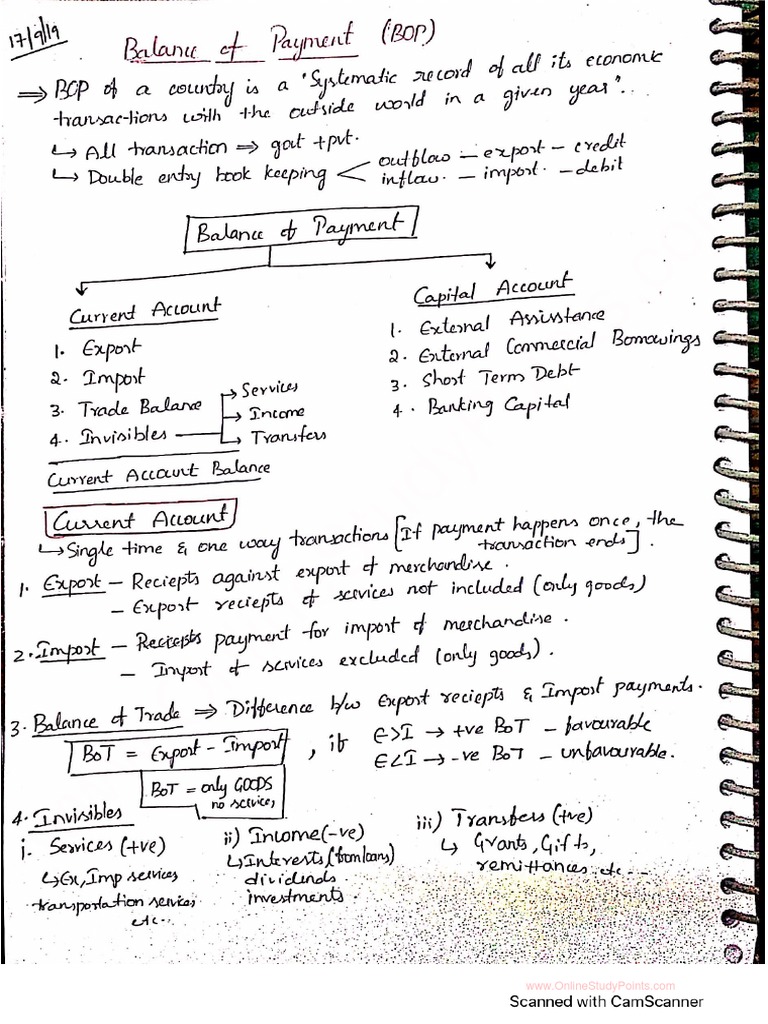 17/9/19
Balance of Payment (BOP)
⇒ BOP of a country is a "Systematic record of all its economic
transactions with the outside world in a given year"..
↳ All transaction ⇒ govt + pvt.
↳ Double entry book keeping < outflow – export – credit
inflow. – import. – debit
Balance of Payment
Current Account
1. Export
2. Import
3. Trade Balance
4. Invisibles → Services
→ Income
→ Transfers
Current Account Balance
Capital Account
1. External Assisstance
2. External Commercial Borrowings
3. Short Term Debt
4. Banking Capital
Current Account
↳ Single time & one way transactions [If payment happens once, the
transaction ends].
1. Export – Reciepts against export of merchandise.
– Export reciepts of services not included (only goods)
2. Import – Reciepts payment for import of merchandise.
– Import of services excluded (only goods).
3. Balance of Trade ⇒ Difference b/w Export reciepts & Import payments.
BoT = Export – Import , if E>I → +ve BoT – favourable
E<I → -ve BoT – unfavourable.
BoT = only GOODS
no services
4. Invisibles
i. Services (+ve)
↳ Ex, Imp services
transportation services
etc..
ii) Income (-ve)
↳ Interests (from loans)
dividends
investments.
iii) Transfers (+ve)
↳ Grants, Gifts,
remittances.. etc...
www.OnlineStudyPoints.com
Scanned with CamScanner